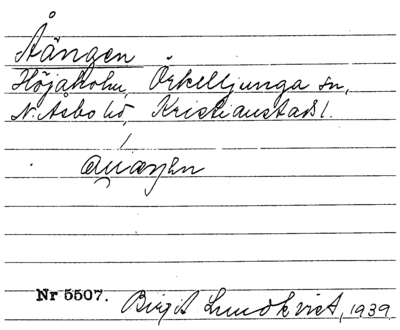 Åängen
Höjaholm, Örkelljunga sn,
N. Åsbo hd, Kristianstads l.
Nr 5507. Birgit Lundkvist, 1939